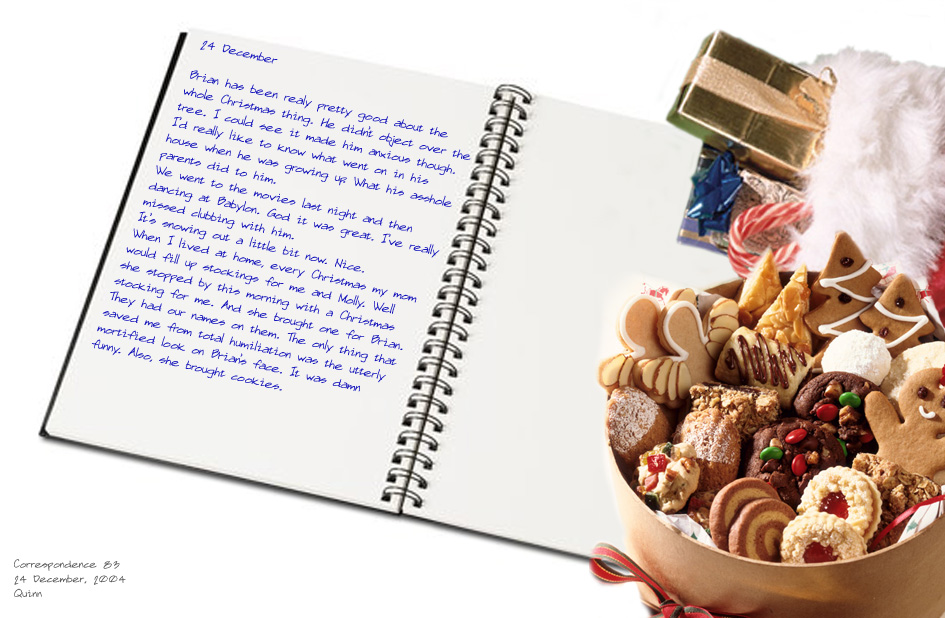 24 December
Brian has been realy pretty good about the
whole Christmas thing. He didn't object over the
tree. I could see it made him anxious though.
I'd really like to know what went on in his
house when he was growing up. What his asshole
parents did to him.
We went to the movies last night and then
dancing at Babylon. God it was great. I've really
missed clubbing with him.
It's snowing out a little bit now. Nice.
When I lived at home, every Christmas my mom
would fill up stockings for me and Molly. Well
she stopped by this morning with a Christmas
stocking for me. And she brought one for Brian.
They had our names on them. The only thing that
saved me from total humiliation was the utterly
mortified look on Brian's face. It was damn
funny. Also, she brought cookies.
Correspondence 83
24 December, 2004
Quinn